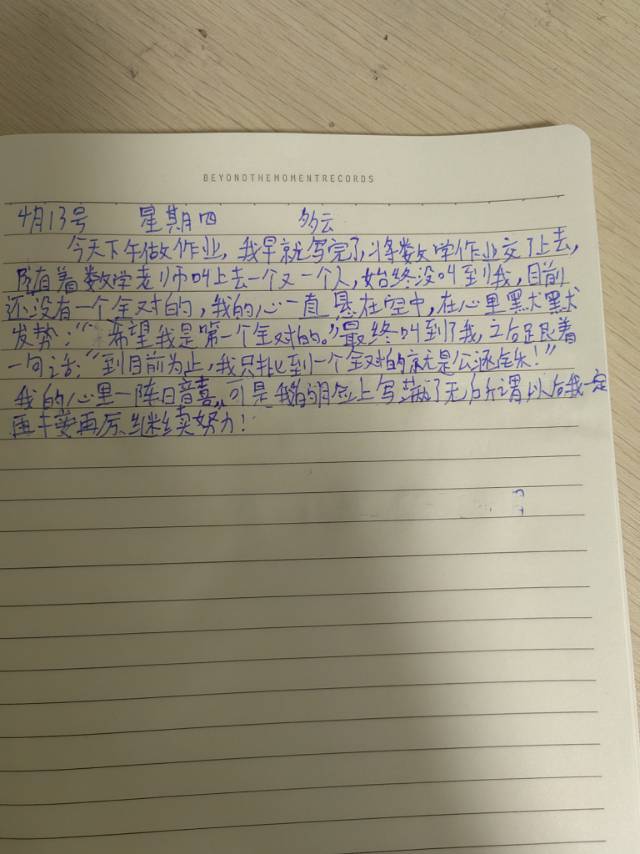 BEYONDTHEMOMENTRECORDS
4月13号 星期四 多云
今天下午做作业，我早就写完了，将数学作业交了上去，
随着数学老师叫上去一个又一个人，始终没叫到我，目前
还没有一个全对的，我的心一直悬在空中，在心里默默
发势：“希望我是第一个全对的。”最终叫到了我，立后足跟着
一句话：“到目前为止，我只批到一个全对的就是公涵！”
我的心里一阵暗喜，可是我的脸上写满了无所谓以后我一定
再干要再厉继续努力！